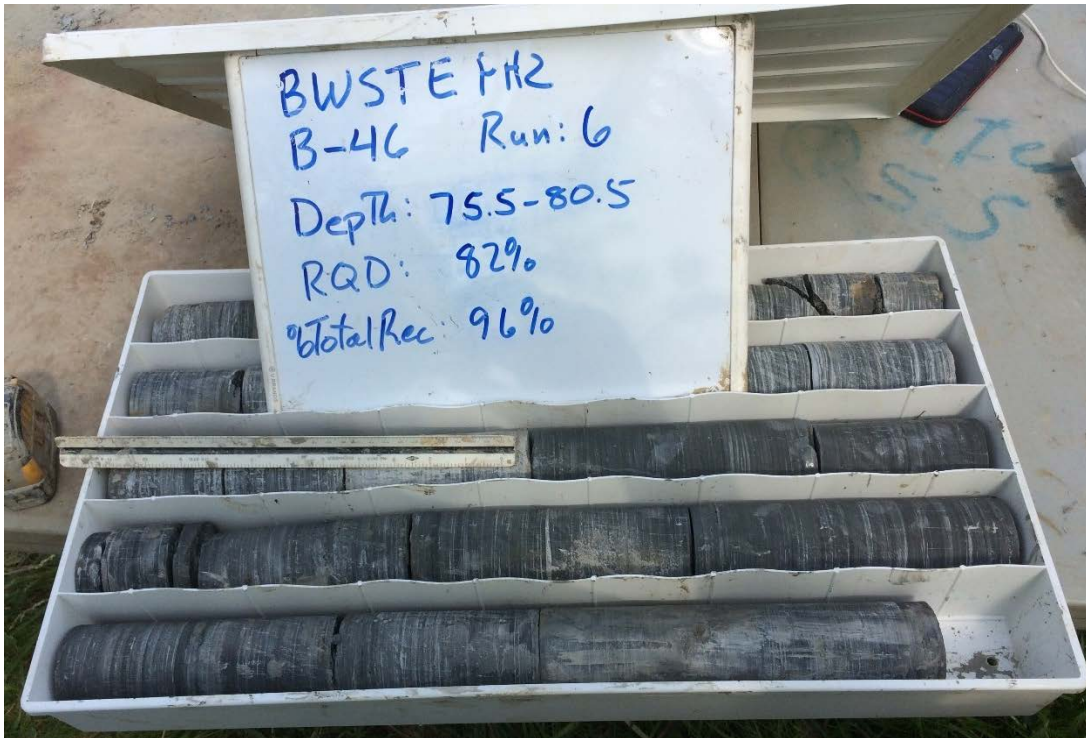 BWSTE PH2
B-46 Run: 6
Depth: 75.5-80.5
RQD: 82%
%TotalRec: 96%